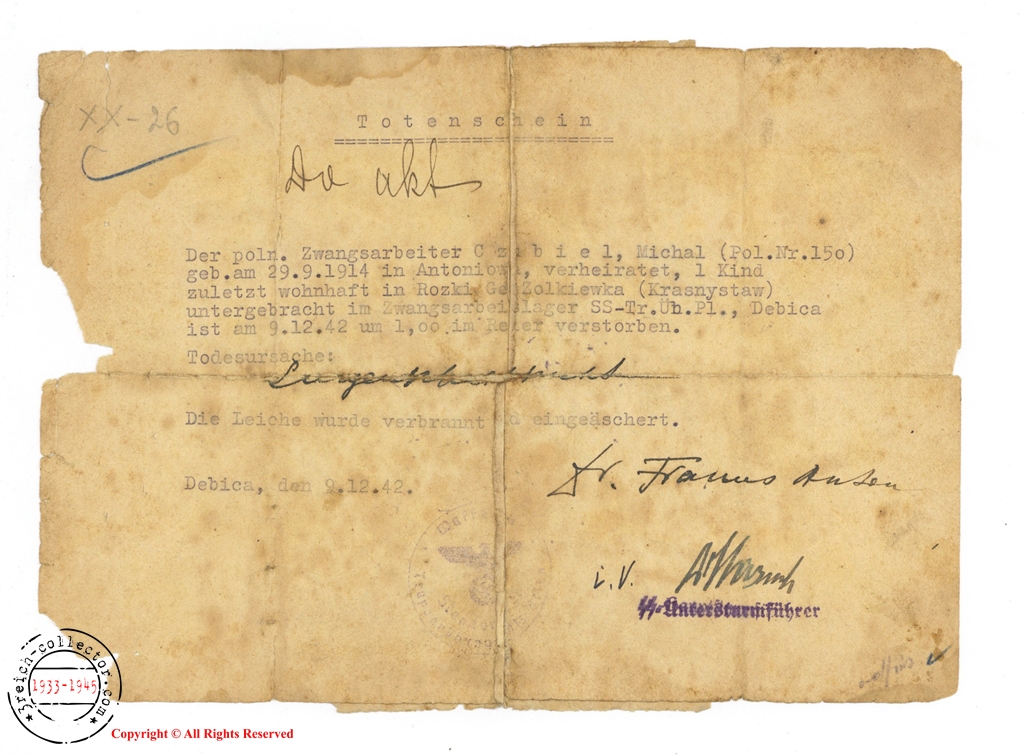 XX-26
Totenschein
Do akt
Der poln. Zwangsarbeiter Czubiel, Michal (Pol.Nr.15o)
geb.am 29.9.1914 in Antoniow, verheiratet, 1 Kind
zuletzt wohnhaft in Rozki Ge Zolkiewka (Krasnystaw)
untergebracht im Zwangsarbeislager SS-Tr.Üb.Pl., Debica
ist am 9.12.42 um 1,oo im Revier verstorben.
Todesursache:
Die Leiche wurde verbrannt und eingeäschert.
Debica, den 9.12.42.
Dr.
i.V.
SS-Untersturmführer
3reich-collector.com
1933-1945
Copyright © All Rights Reserved